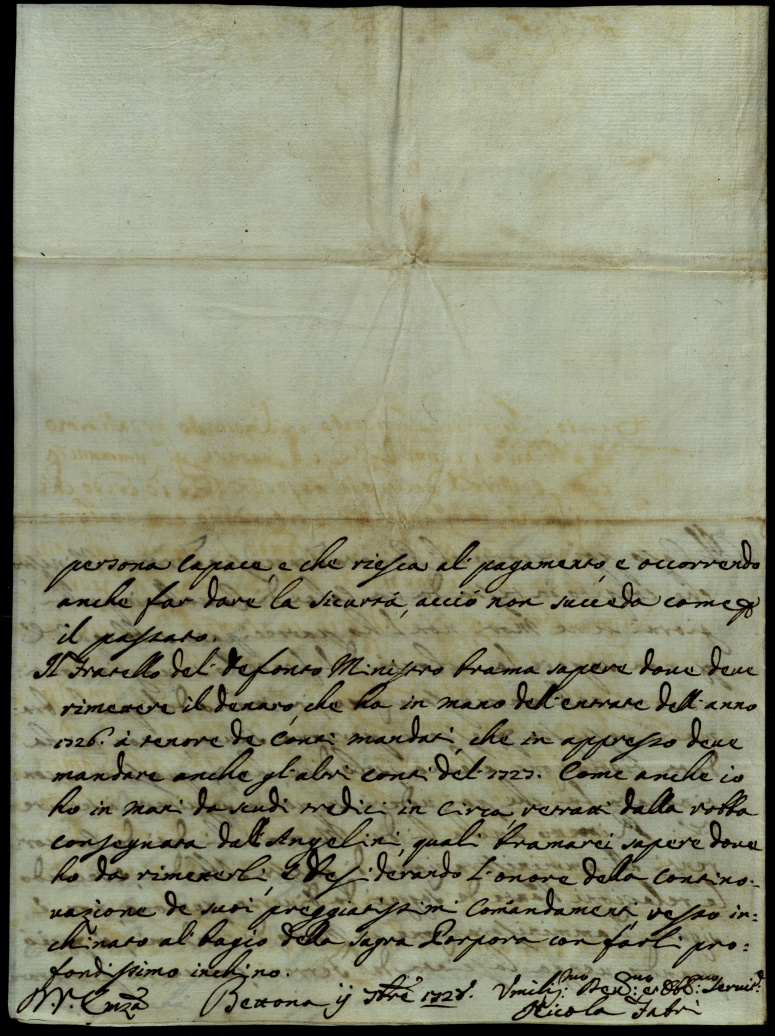 persona capace, e che riesca al pagamento, e occorrendo
anche far dare la sicurtà, acciò non succeda come p
il passato.
Il Fratello del defonto Ministro brama sapere doue deue
rimettere il denaro, che ha in mano dell'entrate dell'anno
1726. à tenore de Conti mandati, che in appresso deue
mandare anche gl'altri conti del 1727. Come anche io
ho in mani da scudi tredici in circa, retratti dalla robba
consegnata dall'Angelini, quali bramarei sapere doue
ho da rimetterli, e desiderando l'onore della contino-
uazione de suoi preggiatissimi comandamenti, resto in-
chinato al bagio della Sagra Porpora con farli pro-
fondissimo inchino.
Bettona 7bre 1728. Umiliss.mo Deu.mo et Obl.mo Seruit.
Nicola Fabri